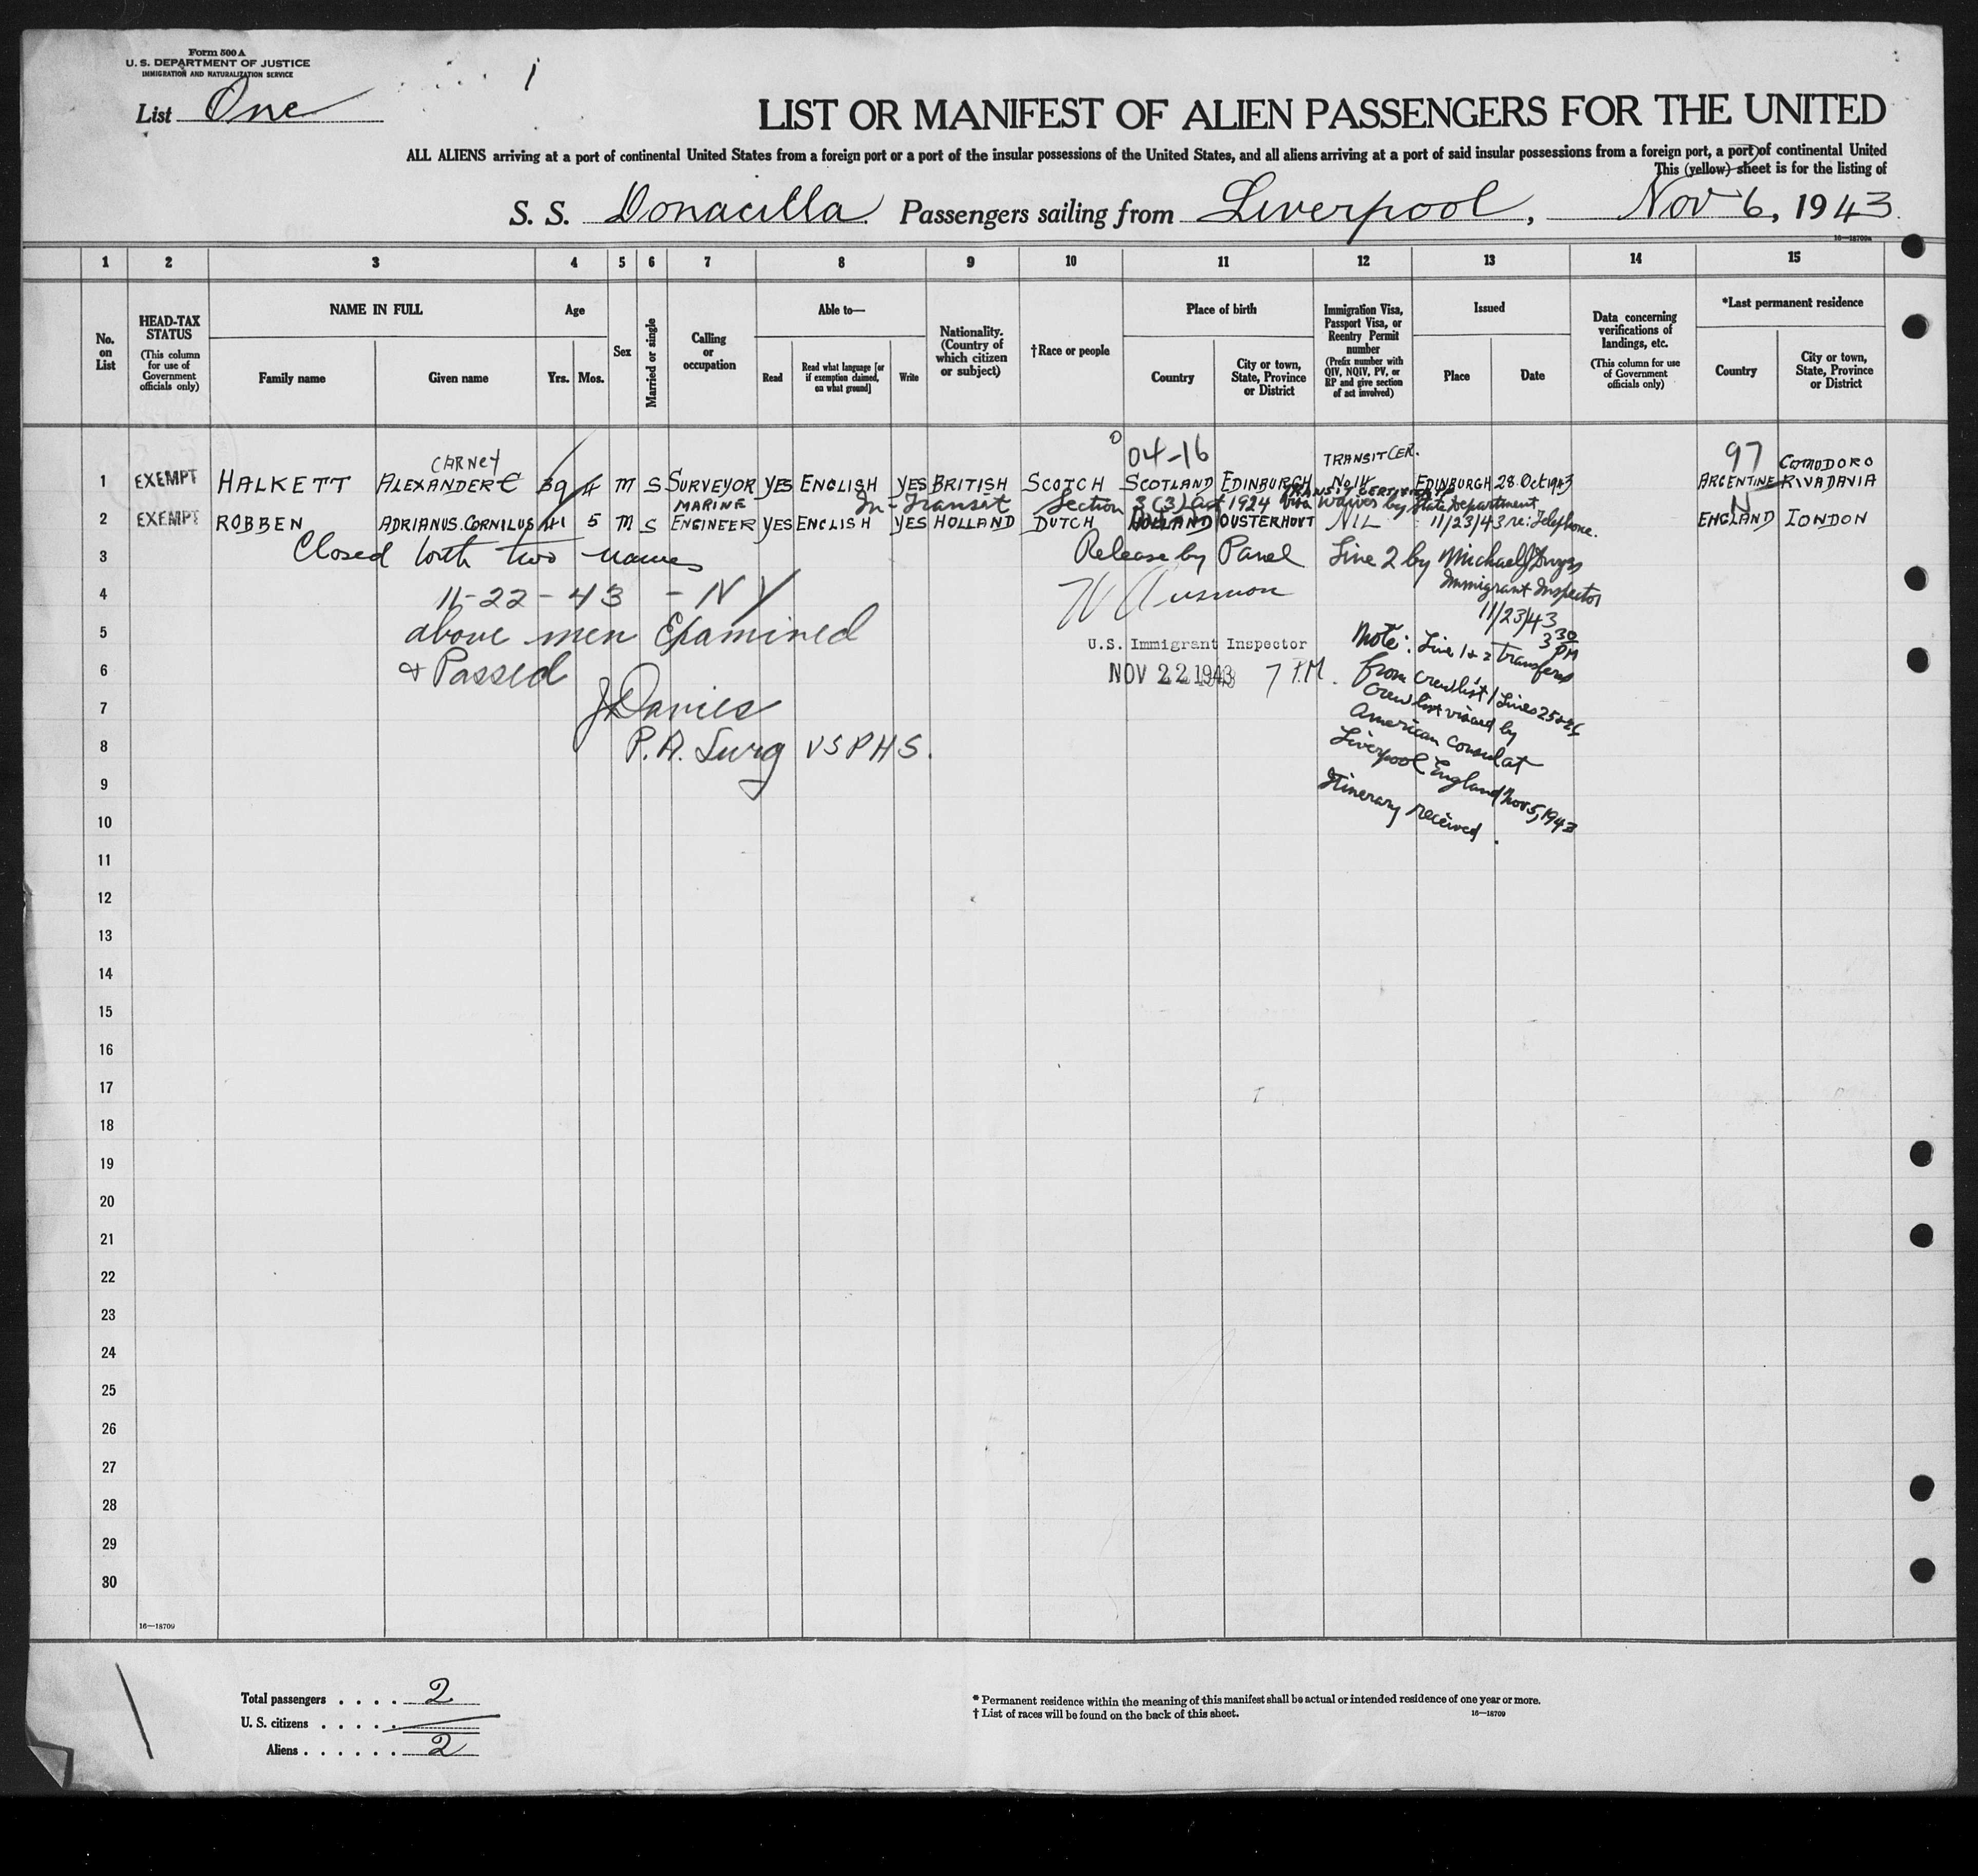 Form 500 A
U. S. DEPARTMENT OF JUSTICE
IMMIGRATION AND NATURALIZATION SERVICE
1
List One
LIST OR MANIFEST OF ALIEN PASSENGERS FOR THE UNITED
ALL ALIENS arriving at a port of continental United States from a foreign port or a port of the insular possessions of the United States, and all aliens arriving at a port of said insular possessions from a foreign port, a port of continental United
This (yellow) sheet is for the listing of
S. S. Donacilla Passengers sailing from Liverpool, Nov 6, 1943
16—18709a
1 2 3 4 5 6 7 8 9 10 11 12 13 14 15
No. on List
HEAD-TAX STATUS (This column for use of Government officials only)
NAME IN FULL
Family name
Given name
Age
Yrs.
Mos.
Sex
Married or single
Calling or occupation
Able to—
Read
Read what language [or if exemption claimed, on what ground]
Write
Nationality. (Country of which citizen or subject)
†Race or people
Place of birth
Country
City or town, State, Province or District
Immigration Visa, Passport Visa, or Reentry Permit number (Prefix number with QIV, NQIV, PV, or RP and give section of act involved)
Issued
Place
Date
Data concerning verifications of landings, etc. (This column for use of Government officials only)
*Last permanent residence
Country
City or town, State, Province or District
CARNEY 04-16 TRANSIT CER. 97 COMODORO
1 EXEMPT HALKETT ALEXANDER C 39 4 M S SURVEYOR YES ENGLISH YES BRITISH SCOTCH SCOTLAND EDINBURGH No 14 EDINBURGH 28 Oct 1943 ARGENTINE RIVADAVIA
MARINE In-Transit Section 3 (3) Act 1924 TRANSIT CERTIFICATE Visa Waiver by State Department N
2 EXEMPT ROBBEN ADRIANUS. CORNILUS 41 5 M S ENGINEER YES ENGLISH YES HOLLAND DUTCH HOLLAND OUSTERHOUT NIL 11/23/43 re: Telephone. ENGLAND LONDON
3 Closed with two names Release by Panel Line 2 by Michael
4 11-22-43 - NY Immigrant Inspector
11/23/43
5 above men Examined 3 30 PM
U.S. Immigrant Inspector
6 & Passed NOV 22 1943 7 PM.
Note: Line 1 & 2 transfers
from crewlist / Lines 25 & 26
Crew list visaed by
American consul at
Liverpool England Nov 5, 1943
Itinerary received.
7 J Davies
8 P. A. Surg USPHS.
9
10
11
12
13
14
15
16
17
18
19
20
21
22
23
24
25
26
27
28
29
30
16—18709
Total passengers . . . . 2
U. S. citizens . . . . .
Aliens . . . . . . 2
* Permanent residence within the meaning of this manifest shall be actual or intended residence of one year or more.
† List of races will be found on the back of this sheet. 16—18709